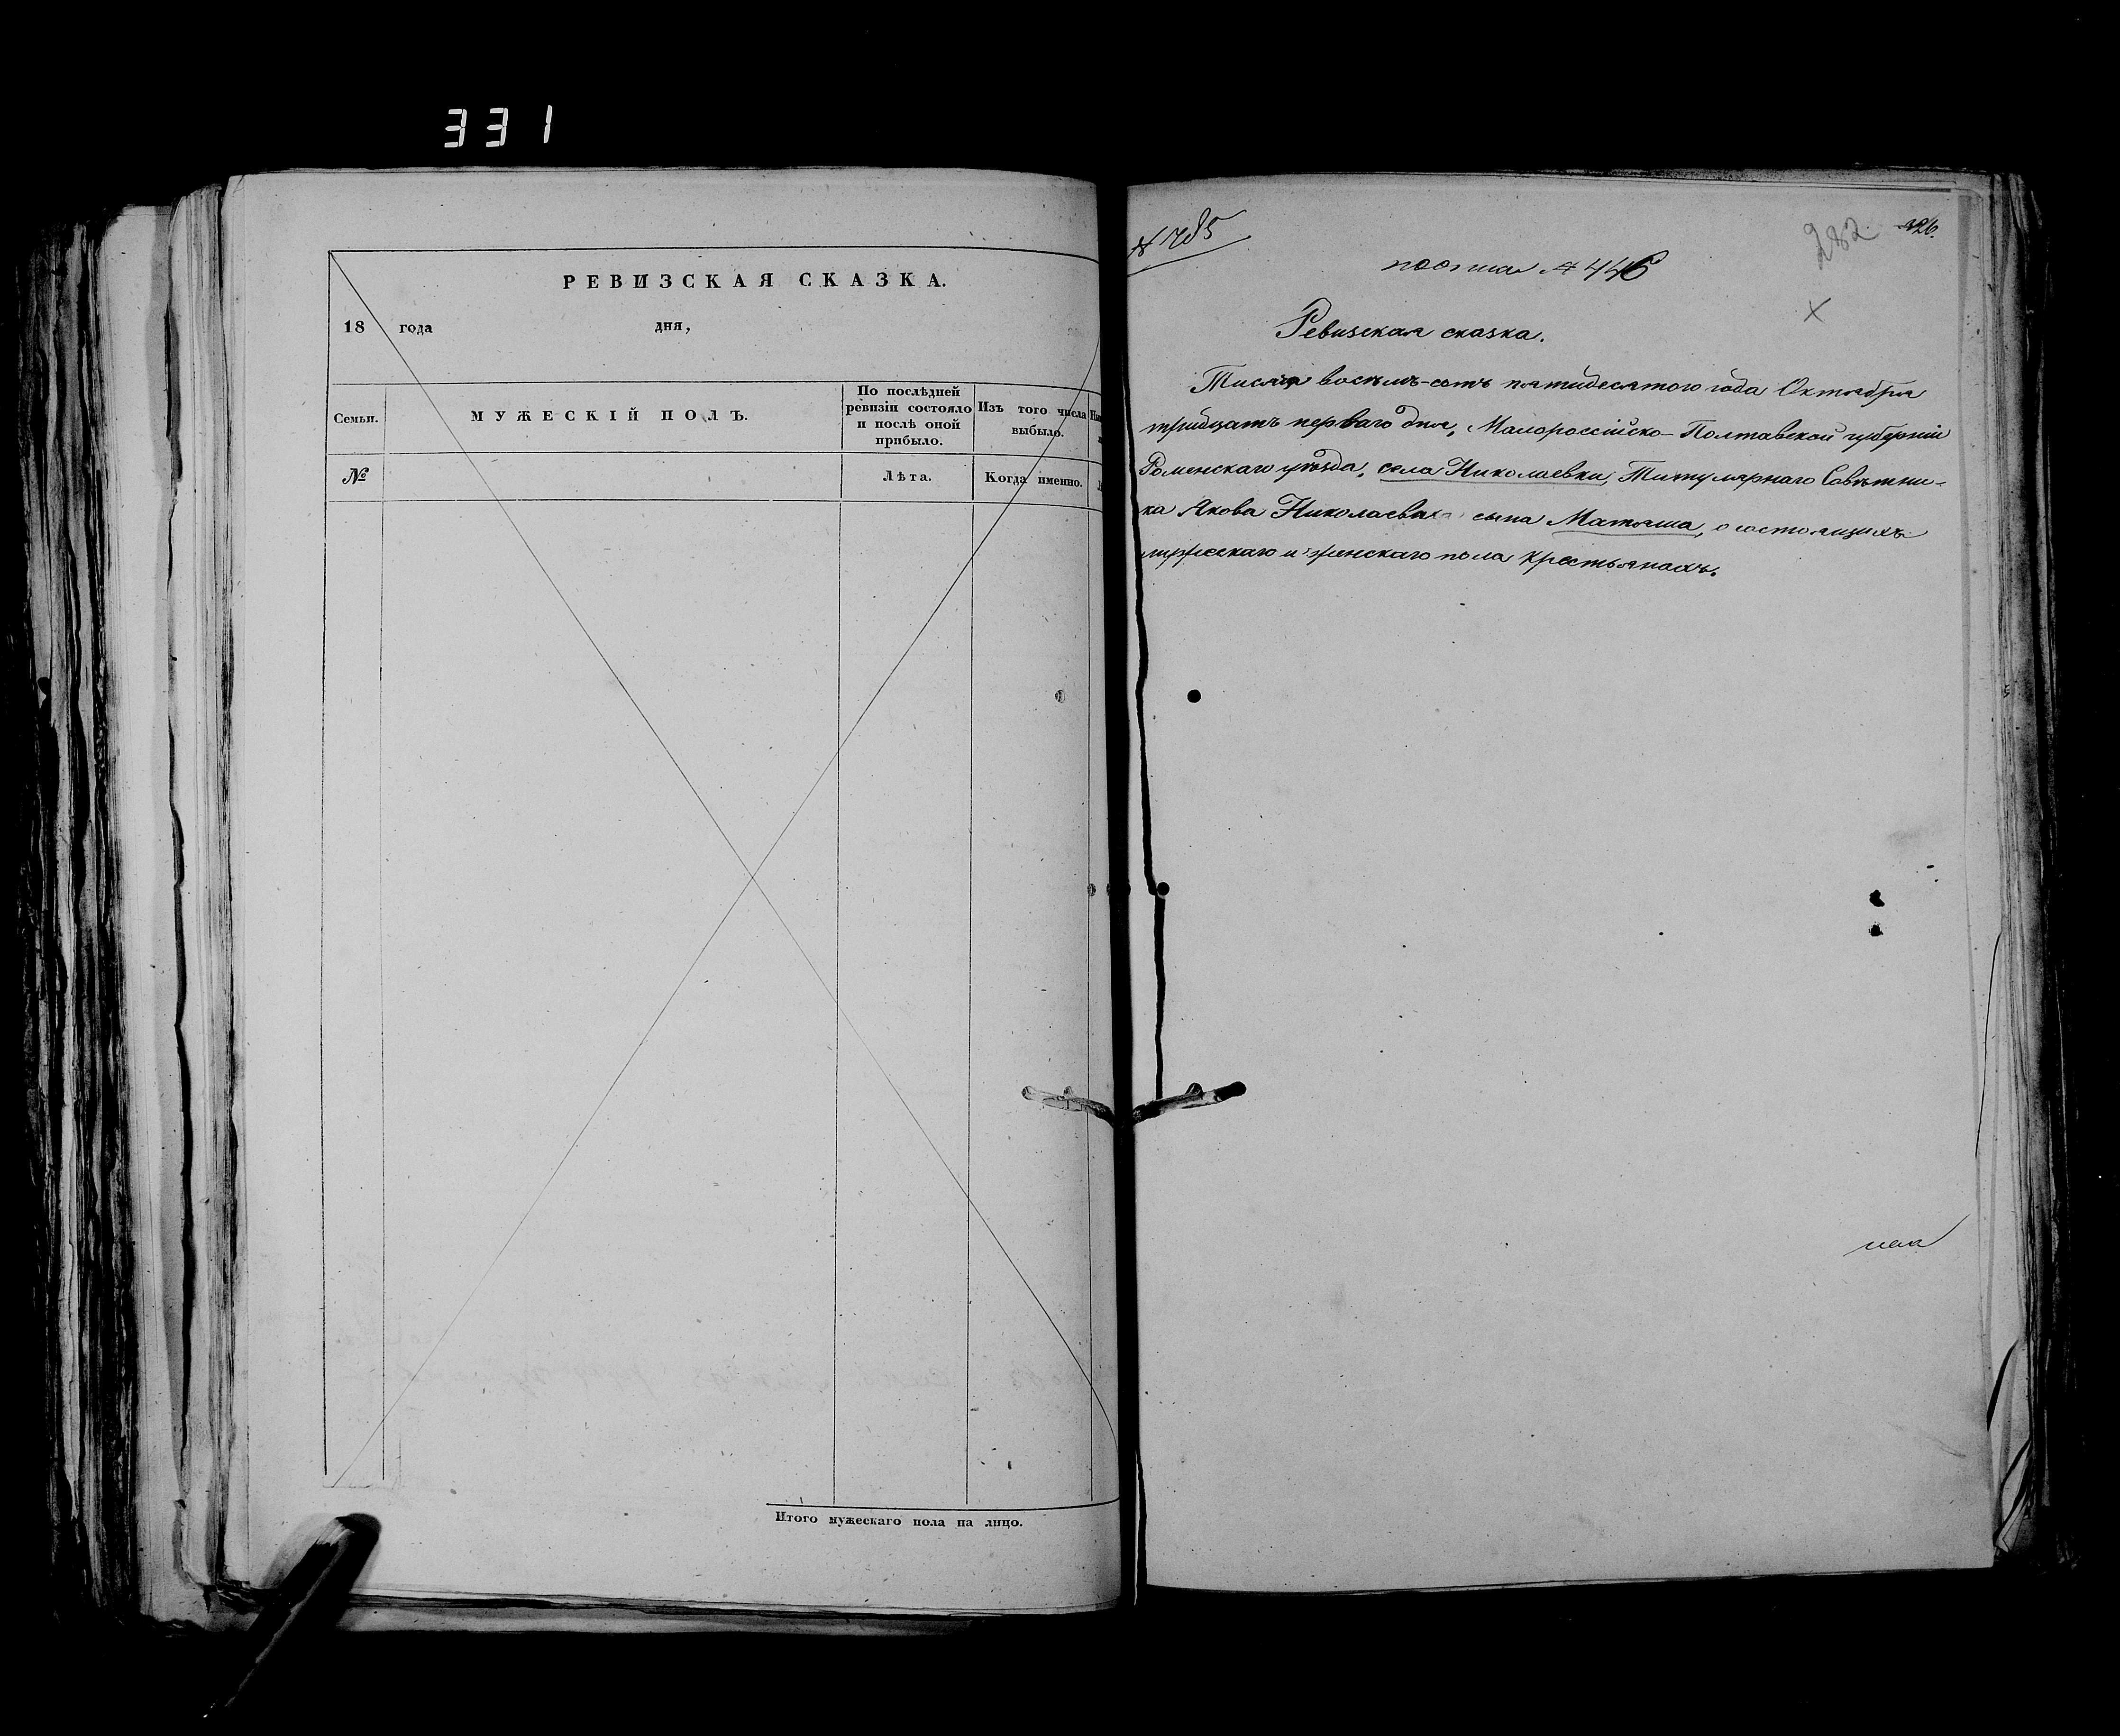 331
РЕВИЗСКАЯ СКАЗКА.
18 года дня,
Семьи.
МУЖЕСКІЙ ПОЛЪ.
По послѣдней
ревизіи состояло
и послѣ оной
прибыло.
Изъ того числа
выбыло.
№
Лѣта.
Когда именно.
Итого мужескаго пола на лицо.
№ 785
282
226.
№ 446
Ревизская сказка.
Тисяча восемъ-сотъ пятидесятого года Октября
тридцать перваго дня, Малороссійско-Полтавской губерніи
Роменскаго уѣзда, села Николаевки, Титулярнаго Совѣтни-
ка Якова Николаева сына Матяша, о состоящихъ
мужескаго и женскаго пола крестьянахъ.